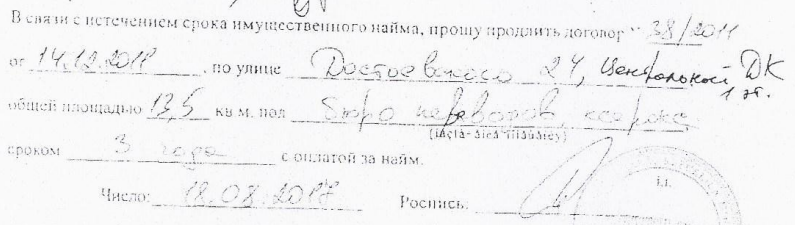 В связи с истечением срока имущественного найма, прошу продлить договор 38/2011
от 14.12.2011, по улице Достоевского 24, Центральный ДК
1 эт.
общей площадью 13,5 кв.м. под Бюро переводов, ксерокс
сроком 3 года с оплатой за найм.
Число: 18.08.2017 Роспись: